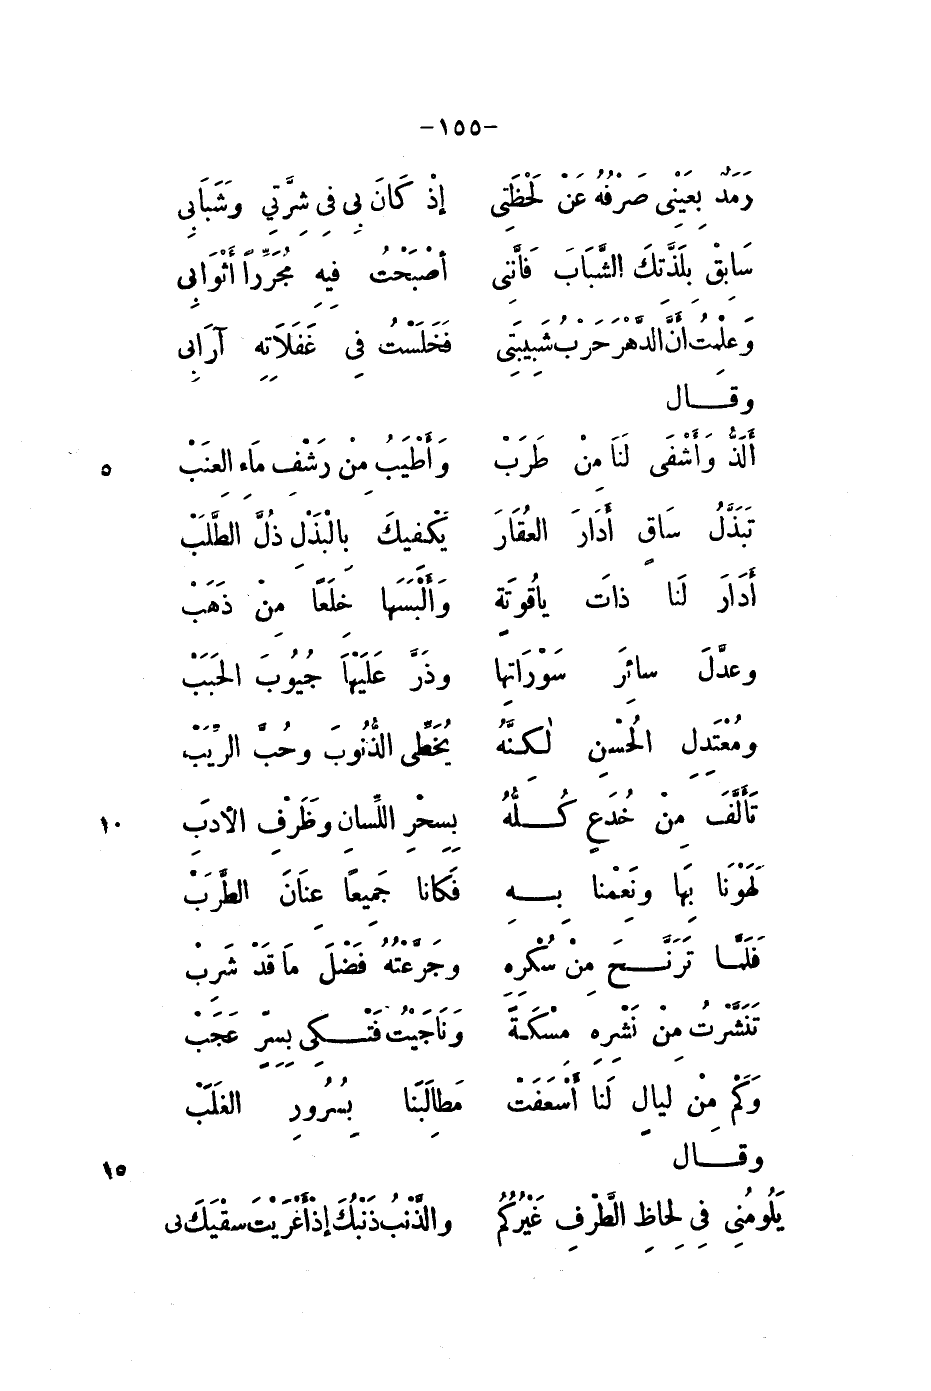 -١٥٥-
رَمَدٌ بِعَيْنِي صَرْفُهُ عَنْ لَحْظَتِي إِذْ كَانَ بِي فِي شِرَّتِي وَشَبَابِي
سَابِقْ بِلَذَّتِكَ الشَّبَابَ فَأَنَّنِي أصْبَحْتُ فِيهِ مُجَرِّراً أَثْوَابِي
وَعلِمْتُ أَنَّ الدَّهْرَ حَرْبُ شَبِيبَتِي فَخَلَسْتُ فِي غَفَلَاتِهِ آرَابِي
وقـــال
أَلَذُّ وَأَشْفَى لَنَا مِنْ طَرَبْ وَأَطْيَبُ مِنْ رَشْفِ مَاءِ العِنَبْ ٥
تَبَذُّلُ سَاقٍ أَدَارَ العُقَارَ يَكْفِيكَ بِالْبَذْلِ ذُلَّ الطَّلَبْ
أَدَارَ لَنا ذاتَ ياقُوتَةٍ وَأَلْبَسَها خِلَعًا مِنْ ذَهَبْ
وعدَّلَ سائِرَ سَوْرَاتِها وذَرَّ عَلَيْهَا جُيُوبَ الحَبَبْ
ومُعْتَدِلِ الْحُسْنِ لٰكِنَّهُ يُخَطِّي الذُّنُوبَ وحُبَّ الرِّيَبْ
تَأَلَّفَ مِنْ خُدَعٍ كُـــلُّهُ بِسِحْرِ اللِّسانِ وظَرْفِ الأدَبْ ١٠
لَهَوْنَا بِهَا ونَعِمْنا بِـــهِ فَكانا جَمِيعًا عِنَانَ الطَّرَبْ
فَلَمَّا تَرَنَّـــحَ مِنْ سُكْرِهِ وجَرَّعْتُهُ فَضْلَ مَا قَدْ شَرِبْ
تَنَشَّرْتُ مِنْ نَشْرِهِ مِسْكَةً وَنَاجَيْتُ فَتْـــكِي بِسِرٍّ عَجَبْ
وَكَمْ مِنْ ليالٍ لَنا أَسْعَفَتْ مَطالِبَنا بِسُرُورِ الغَلَبْ
وقـــال ١٥
يَلُومُنِي فِي لِحاظِ الطَّرْفِ غَيْرُكُمُ والذَّنْبُ ذَنْبُكَ إذْ أَغْرَيْتَ سقْيَكَ بي